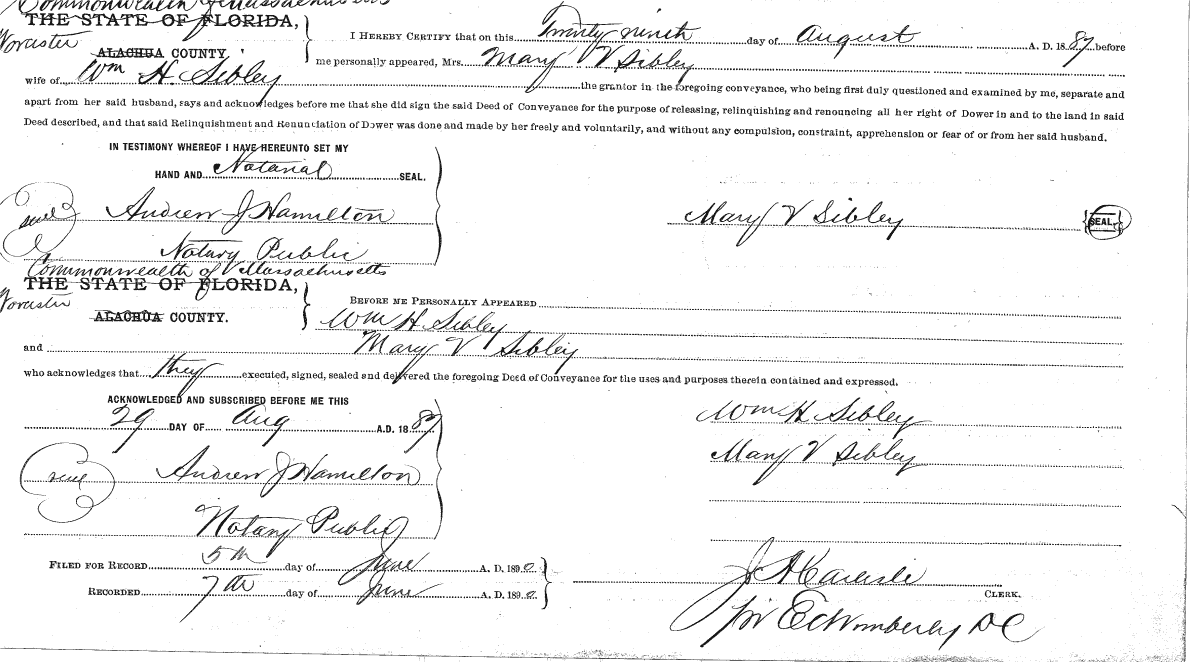 Commonwealth of Massachusetts
THE STATE OF FLORIDA,
Worcester
ALACHUA COUNTY.
I HEREBY CERTIFY that on this Twenty ninth day of August A. D. 1887 before
me personally appeared, Mrs. Mary V Sibley
wife of Wm H. Sibley the grantor in the foregoing conveyance, who being first duly questioned and examined by me, separate and
apart from her said husband, says and acknowledges before me that she did sign the said Deed of Conveyance for the purpose of releasing, relinquishing and renouncing all her right of Dower in and to the land in said
Deed described, and that said Relinquishment and Renunciation of Dower was done and made by her freely and voluntarily, and without any compulsion, constraint, apprehension or fear of or from her said husband.
IN TESTIMONY WHEREOF I HAVE HEREUNTO SET MY
HAND AND Notarial SEAL.
seal Andrew J Hamilton
Mary V Sibley SEAL
Notary Public
Commonwealth of Massachusetts
THE STATE OF FLORIDA,
Worcester
ALACHUA COUNTY.
BEFORE ME PERSONALLY APPEARED
Wm H. Sibley
and Mary V Sibley
who acknowledges that they executed, signed, sealed and delivered the foregoing Deed of Conveyance for the uses and purposes therein contained and expressed.
ACKNOWLEDGED AND SUBSCRIBED BEFORE ME THIS
29 DAY OF Aug A.D. 1887
Wm H Sibley
Mary V Sibley
seal Andrew J Hamilton
Notary Public
FILED FOR RECORD 5th day of June A. D. 1890
RECORDED 7th day of June A. D. 1890
J A Carlisle
CLERK.
pr E C Wimberly DC